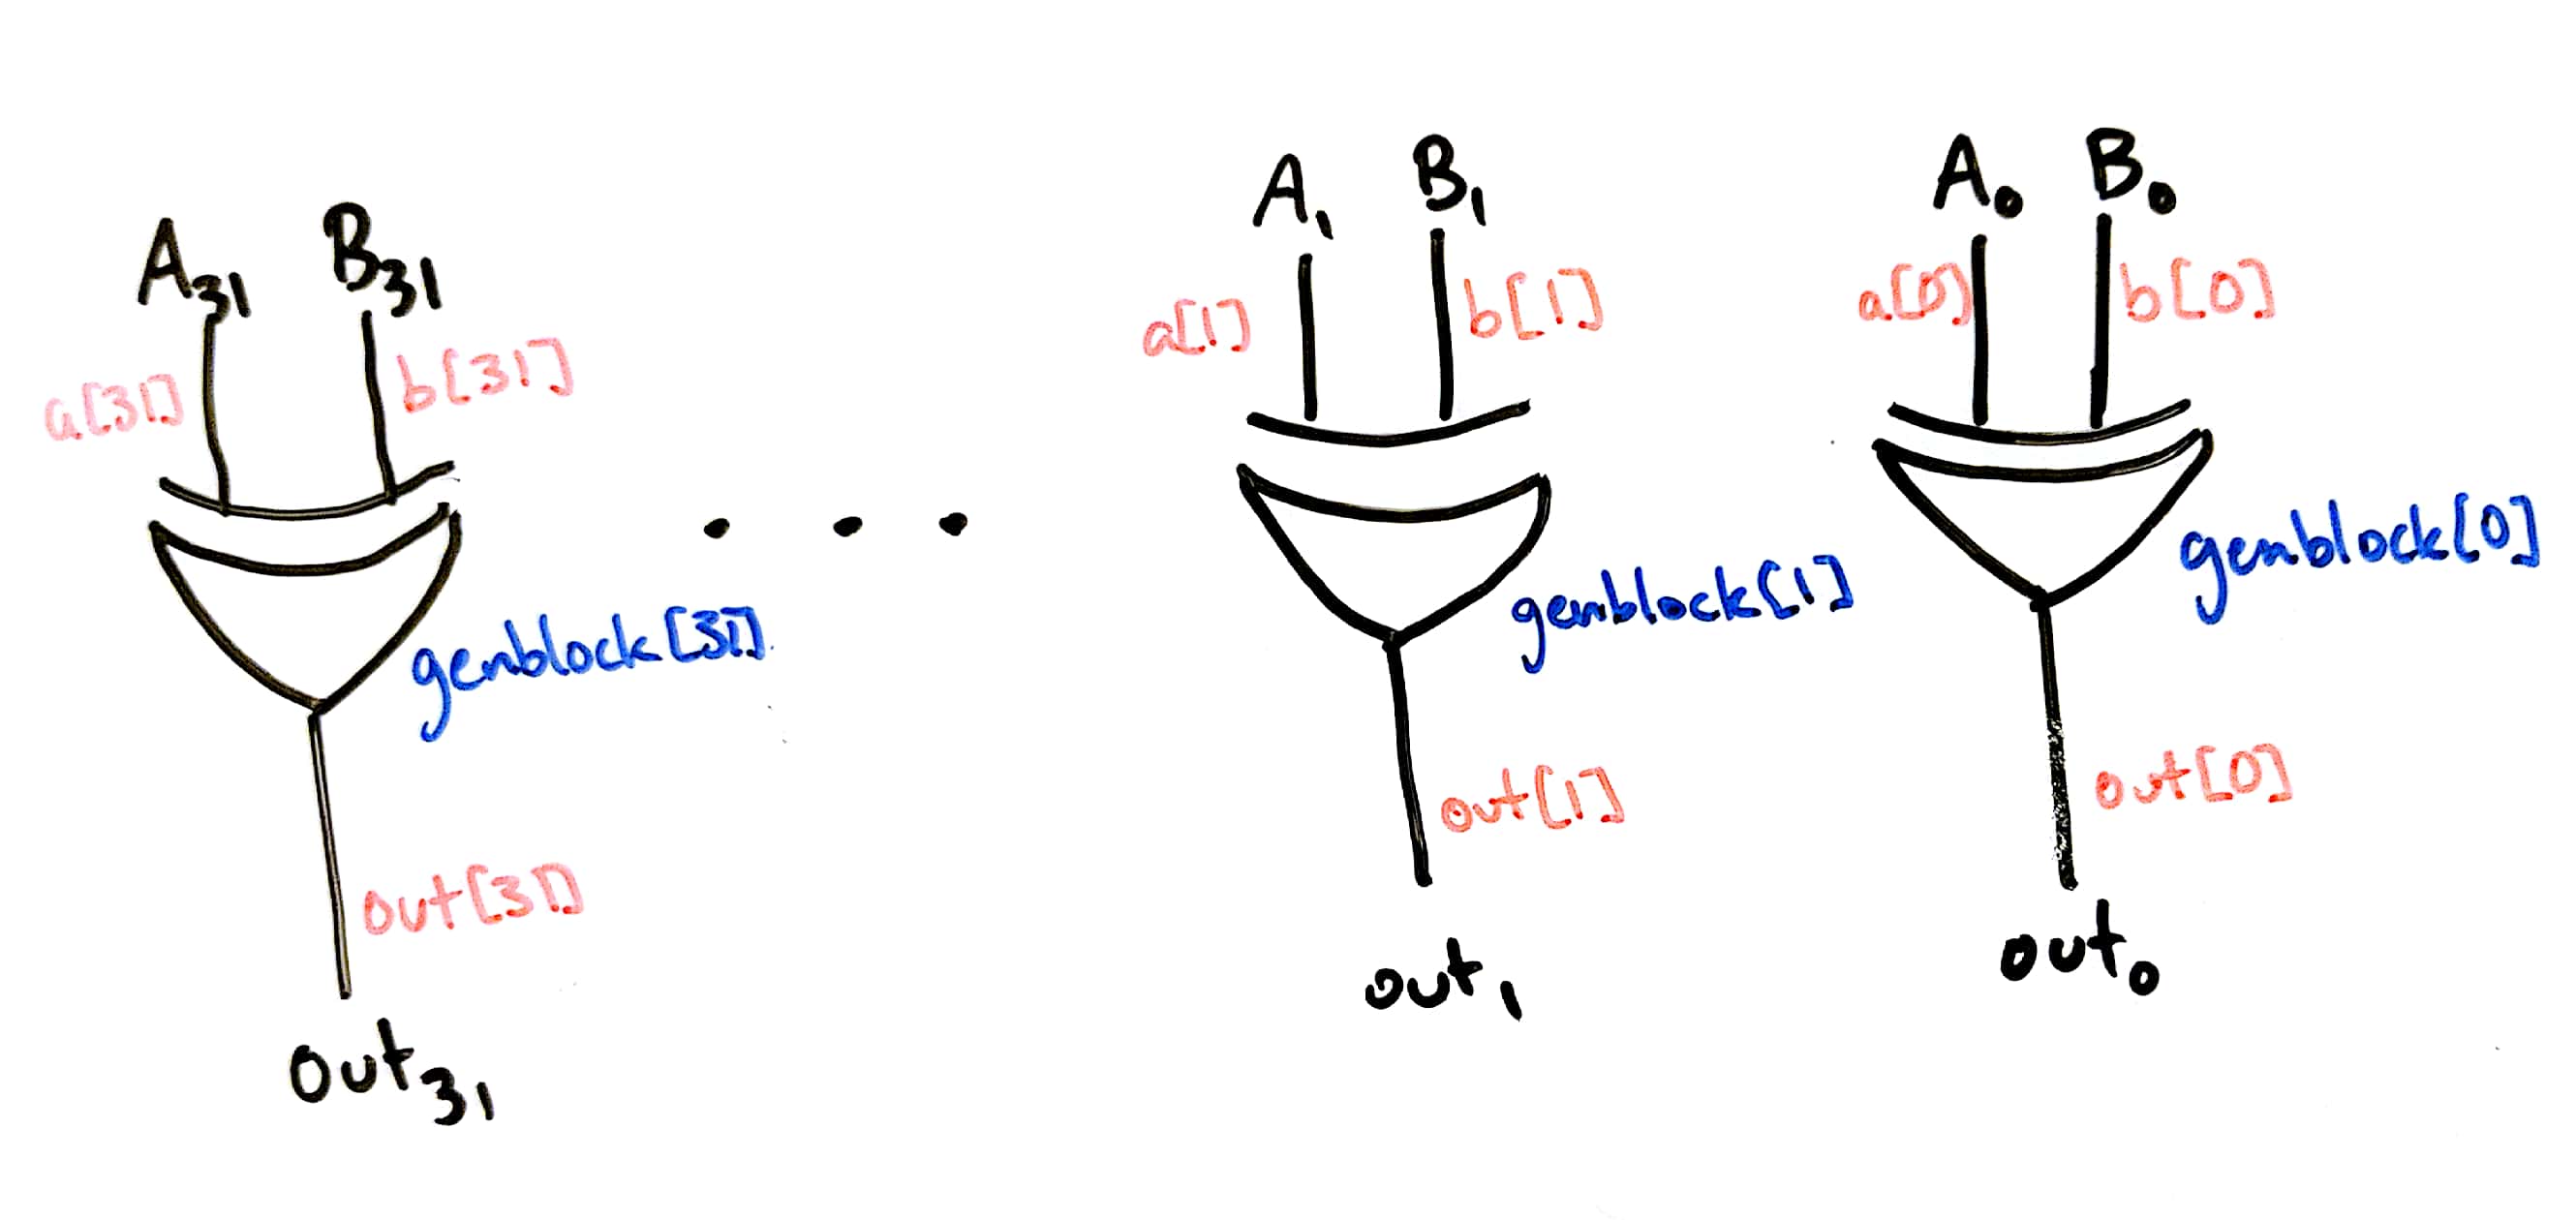 A₃₁ B₃₁
a[31] b[31]
genblock[31]
out[31]
out₃₁
A₁ B₁
a[1] b[1]
genblock[1]
out[1]
out₁
A₀ B₀
a[0] b[0]
genblock[0]
out[0]
out₀